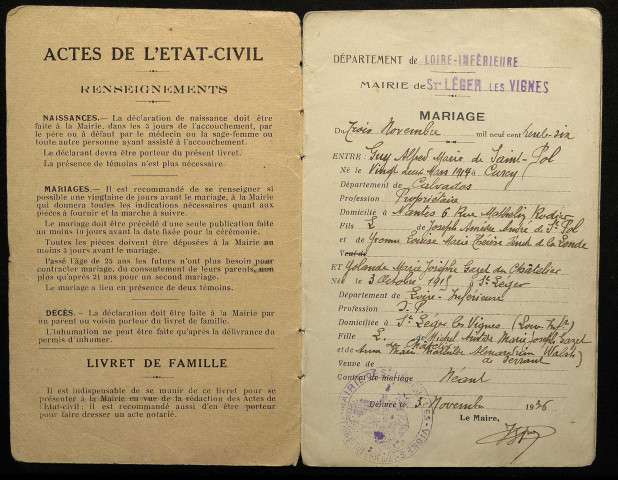 ACTES DE L'ETAT-CIVIL
RENSEIGNEMENTS
NAISSANCES. — La déclaration de naissance doit être
faite à la Mairie, dans les 3 jours de l'accouchement, par
le père ou à défaut par le médecin ou la sage-femme ou
toute autre personne ayant assisté à l'accouchement.
Le déclarant devra être porteur du présent livret.
La présence de témoins n'est plus nécessaire.
MARIAGES. — Il est recommandé de se renseigner si
possible une vingtaine de jours avant le mariage, à la Mairie
qui donnera toutes les indications nécessaires quant aux
pièces à fournir et la marche à suivre.
Le mariage doit être précédé d'une seule publication faite
au moins 10 jours avant la date fixée pour la cérémonie.
Toutes les pièces doivent être déposées à la Mairie au
moins 3 jours avant le mariage.
Passé l'âge de 25 ans les futurs n'ont plus besoin pour
contracter mariage, du consentement de leurs parents, non
plus qu'après 21 ans pour un second mariage.
Le mariage a lieu en présence de deux témoins.
DÉCÈS. — La déclaration doit être faite à la Mairie par
un parent ou voisin porteur du livret de famille.
L'inhumation ne peut être faite qu'après la délivrance du
permis d'inhumer.
LIVRET DE FAMILLE
Il est indispensable de se munir de ce livret pour se
présenter à la Mairie en vue de la rédaction des Actes de
l'Etat-civil; il est recommandé aussi d'en être porteur
pour faire dresser un acte notarié.
DÉPARTEMENT de LOIRE-INFÉRIEURE
MAIRIE de St LÉGER LES VIGNES
MARIAGE
Du trois Novembre mil neuf cent trente-six
ENTRE: Guy Alfred Marie de Saint-Pol
Né le Vingt deux Mars 1914 à Curcy
Département de Calvados
Profession Propriétaire
Domicilié à Nantes 6 Rue
Fils L de Joseph Aimée André de St Pol
et de Yvonne Louise Marie de la Lande
Veuf de
ET Yolande Marie Josèphe Gazet du Châtelier
Née le 3 Octobre 1915 à St Léger
Département de Loire-Inférieure
Profession S.P.
Domiciliée à St Léger les Vignes (Loire-Infre)
Fille L de Michel Marie Joseph Gazet
et de Anne Marie Mathilde Walsh
de Serrant
Veuve de
Contrat de mariage Néant
Délivré le 3 Novembre 1936
Le Maire,